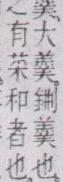 羹。大羹、鉶羹也。
之有菜和者也。